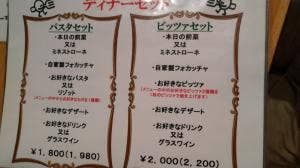 ディナーセット
パスタセット
・本日の前菜
又は
ミネストローネ
・自家製フォカッチャ
・お好きなパスタ
又は
リゾット
・お好きなデザート
・お好きなドリンク
又は
グラスワイン
¥1,800(1,980)
ピッツァセット
・本日の前菜
又は
ミネストローネ
・自家製フォカッチャ
・お好きなピッツァ
・お好きなデザート
・お好きなドリンク
又は
グラスワイン
¥2,000(2,200)